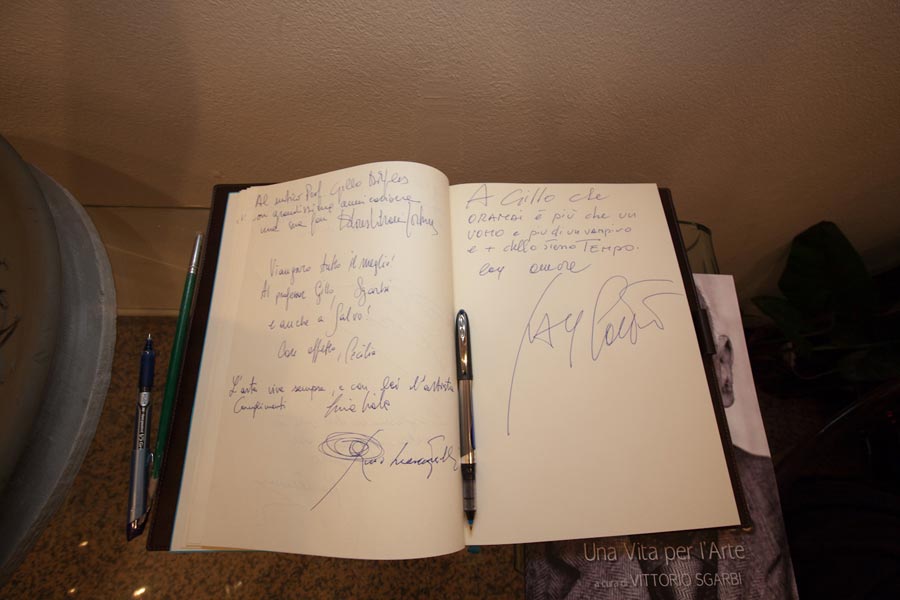 Al mitico Prof. Gillo Dorfles
con grandissima ammirazione
una sua fan
Viangaro tutto il meglio!
Al professor Gillo, Sgarbi
e anche a Salvo!
Con affetto, Cecilia
L'arte vive sempre, e con lei l'artista
Complimenti
A Gillo che
ORAMAI è più che un
UOMO e più di un vampiro
e + dello stesso TEMPO.
con amore
Una Vita per l'Arte
a cura di VITTORIO SGARBI